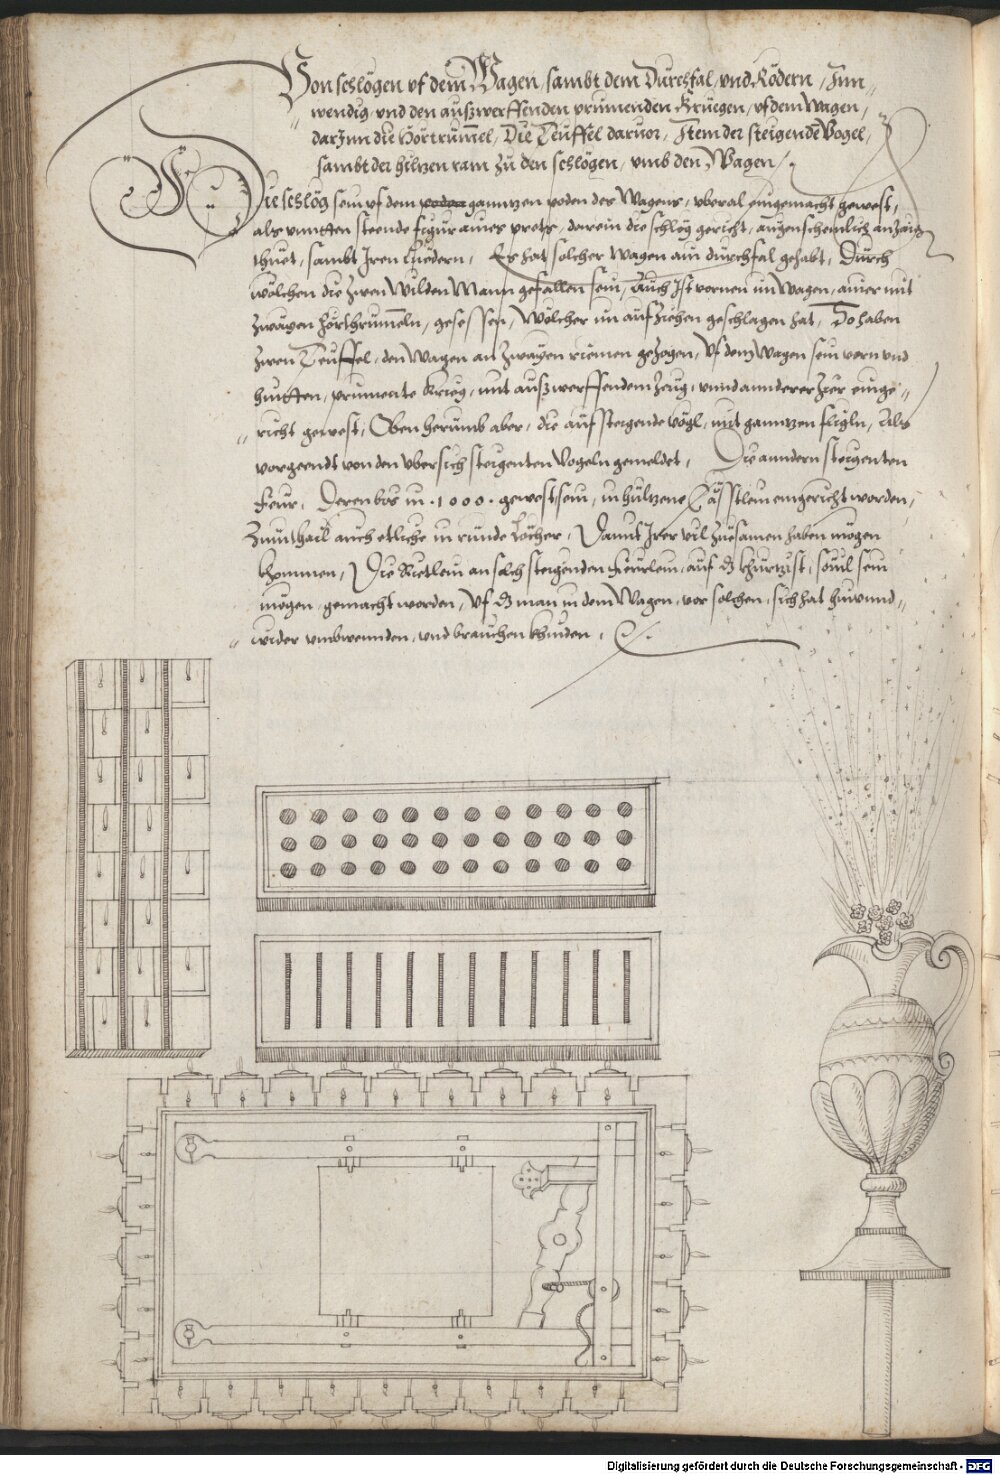 Von schlögen vf dem Wagen, sambt dem Durchfal, vnd Rödern, Inn„
„wendig, vnd den außwerffenden prinenden Kruegen, vf dem Wagen,
darInn die Hörtrumel, Die Teuffel daruor, Item der steigende Vogel,
sambt der hiltzen ram zu den schlögen, vmb den Wagen /.
Die schlög sein vf dem ganntzen poden des Wagens, vberal eingemacht gewest,
als vnntten steende figur aines prets, darein die schlög gericht, augenscheinlich anzaig
thuet, sambt Iren liedern, Er hat solcher Wagen ain durchfal gehabt, Durch
wölchen die zwen Wilden Mann gefallen sein, Auch ist vornen im Wagen, ainer mit
zwayen hörthrumeln, gesessen, Wölcher im aufziehen geschlagen hat, So haben
zwen Teuffel, den Wagen an zwayen riemen gezogen, Vf dem Wagen sein vorn vnd
hintten, prinente Krieg, mit außwerffendem zeug, vnnd annderer zier einge„
„richt gewest, Oben herumb aber, die aufsteigende vögl, mit ganntzen fligln, Als
vorgeendt von den vbersich steigenten Vogeln gemeldet, Die anndern steigenten
feur, Deren bis in .1000. gewest sein, in hültzene Cässtlen eingericht worden,
Zum thail auch etliche in runde Löcher, Damit Irer vil zuesamen haben mögen
khommen, Die Rietlein an solch steigenden feurlein, auf dz khurtzist, souil sein
mögen, gemacht worden, Vf dz man in dem Wagen, vor solchen, sich hat hin vnnd„
„wider vmbwennden, vnd brauchen khinden,
Digitalisierung gefördert durch die Deutsche Forschungsgemeinschaft - DFG